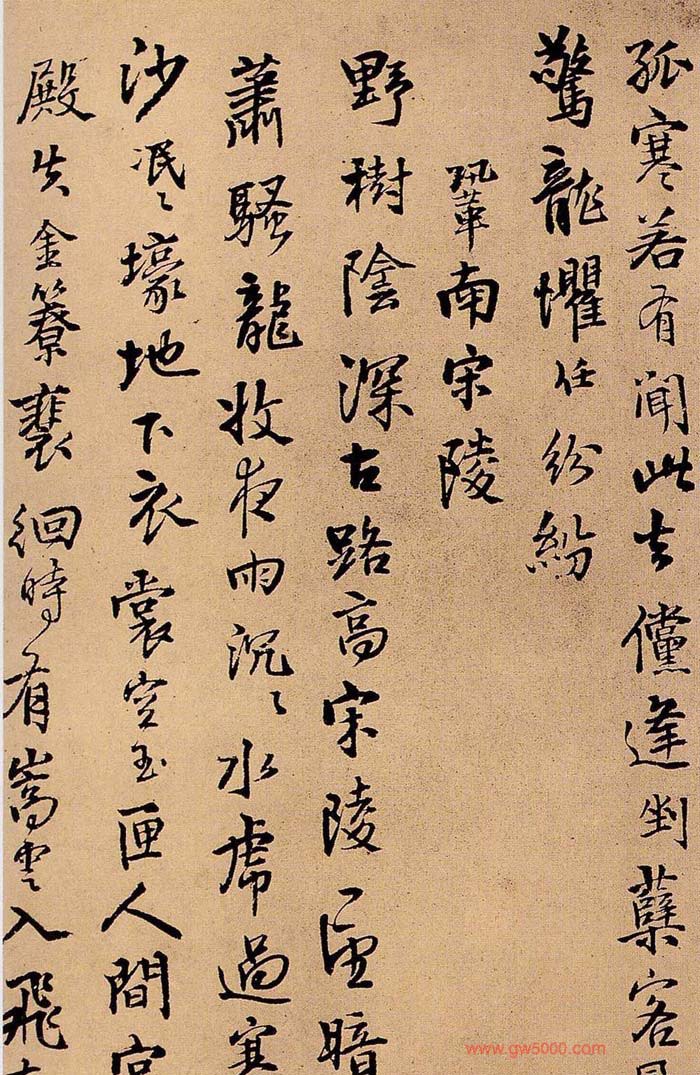 孤寒若有聞此去儻逢剉蘗客
驚龍懼任紛紛
鞏南宋陵
野樹陰深古路高宋陵一望暗
蕭騷龍收夜雨沉々水虎過寒
沙泯々壕地下衣裳空玉匣人間宮
殿失金簝裴徊時有嵩雲入飛
www.gw5000.com